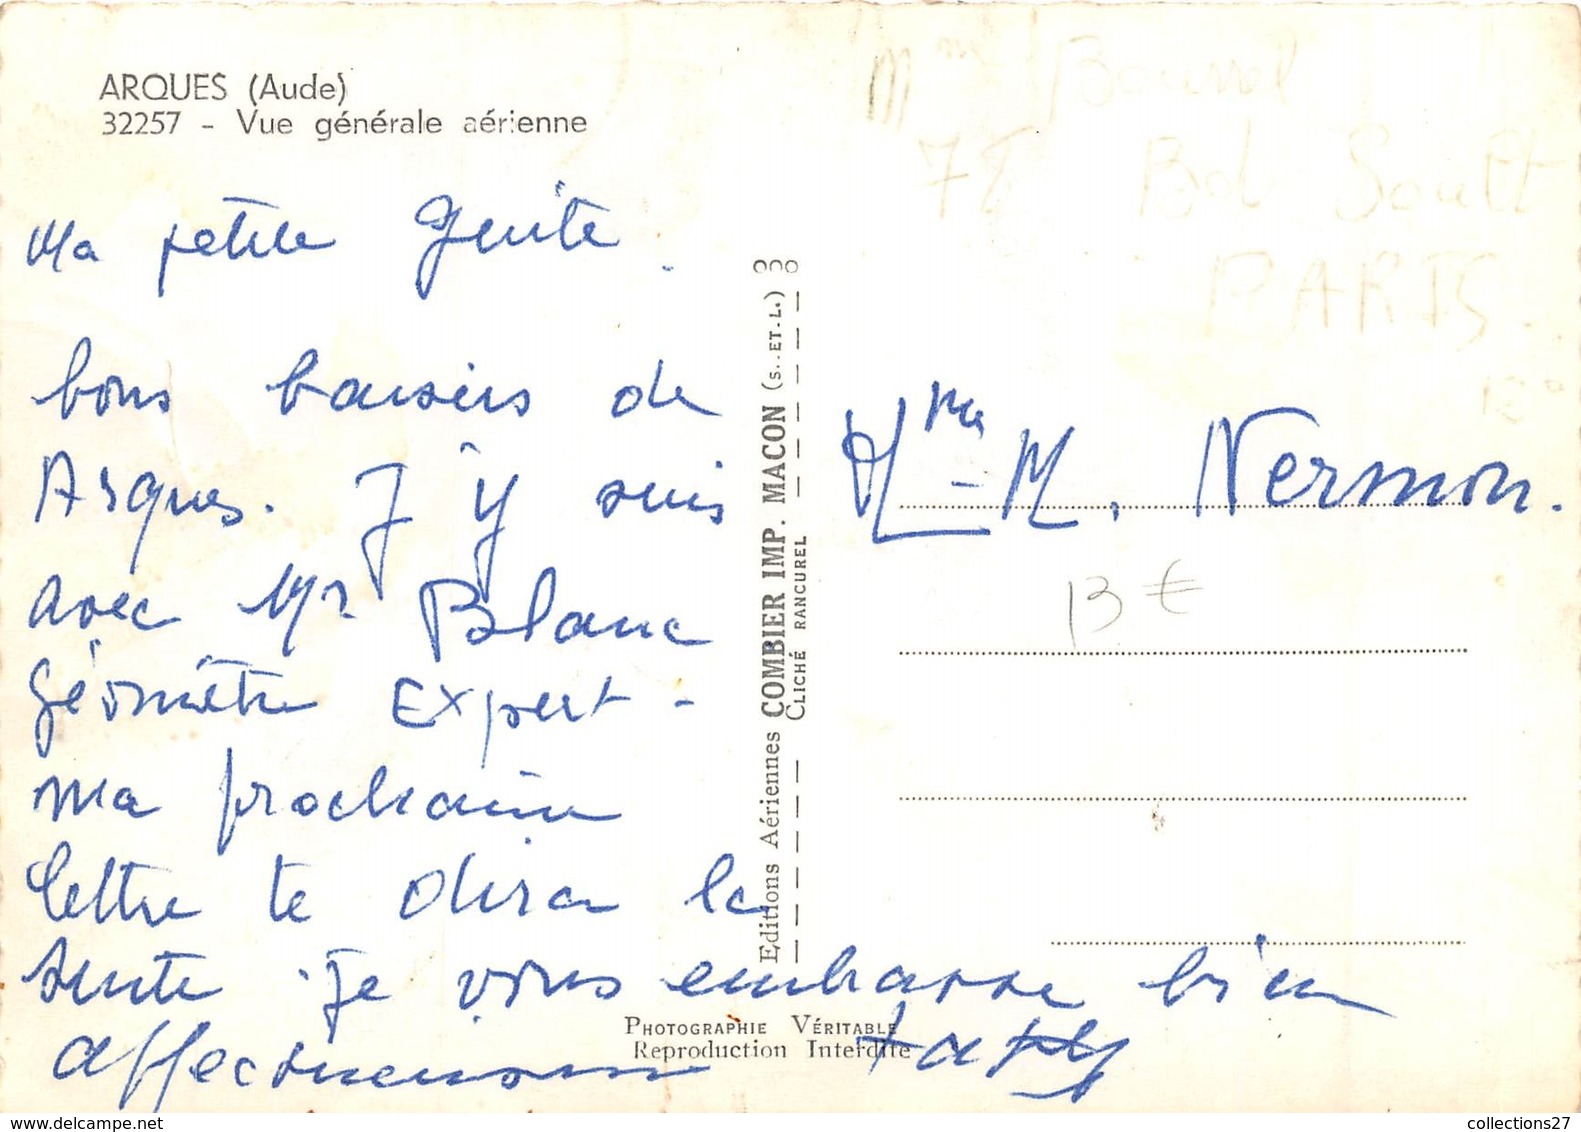 ARQUES (Aude)
32257 - Vue générale aérienne
Ma petite
bons baisers de
Arques. J'y suis
avec Mr Blanc
géomètre Expert -
ma prochaine
lettre te dira la
suite. Je vous embrasse bien
affectueusement
Editions Aériennes COMBIER IMP. MACON (S.-ET-L.)
CLICHÉ RANCUREL
PHOTOGRAPHIE VÉRITABLE
Reproduction Interdite
Mme Bourrel
78 Bd Soult
PARIS
12e
Mme M. Vermon.
13 €
collections27